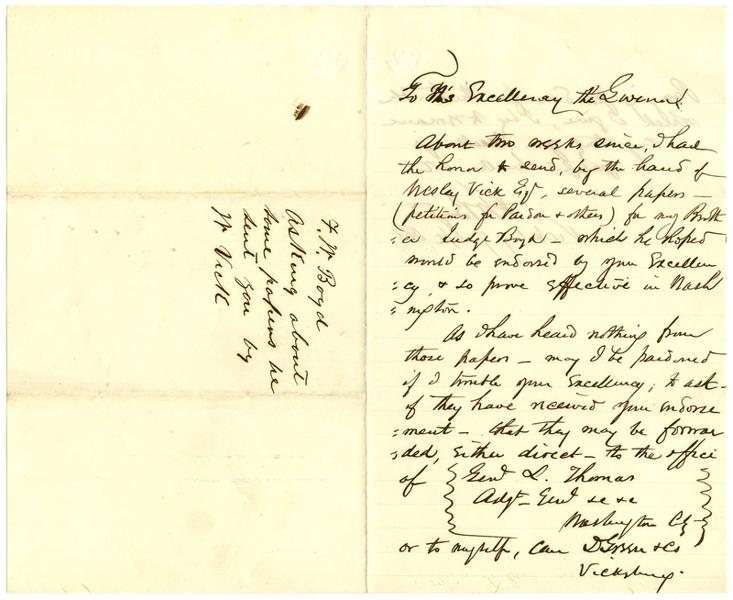 To His Excellency the Governor
About two weeks since, I had
the honor to send, by the hand of
Wesley Vick Esqr, several papers —
(petitions for Pardon & others) for my Broth
:er Judge Boyd — which he hoped
would be endorsed by your Excellen
:cy, & so prove effective in Wash
:ington.
As I have heard nothing from
those papers — may I be pardoned
if I trouble your Excellency, to ask —
if they have received your endorse
:ment — that they may be forwar
:ded, either direct — to the office
of Genl L. Thomas
Adjt — Genl &c &c
Washington Cy —
or to myself, care D Green & Co
Vicksburg.
F. W. Boyd
Asking about
some papers he
sent you by
W Vick